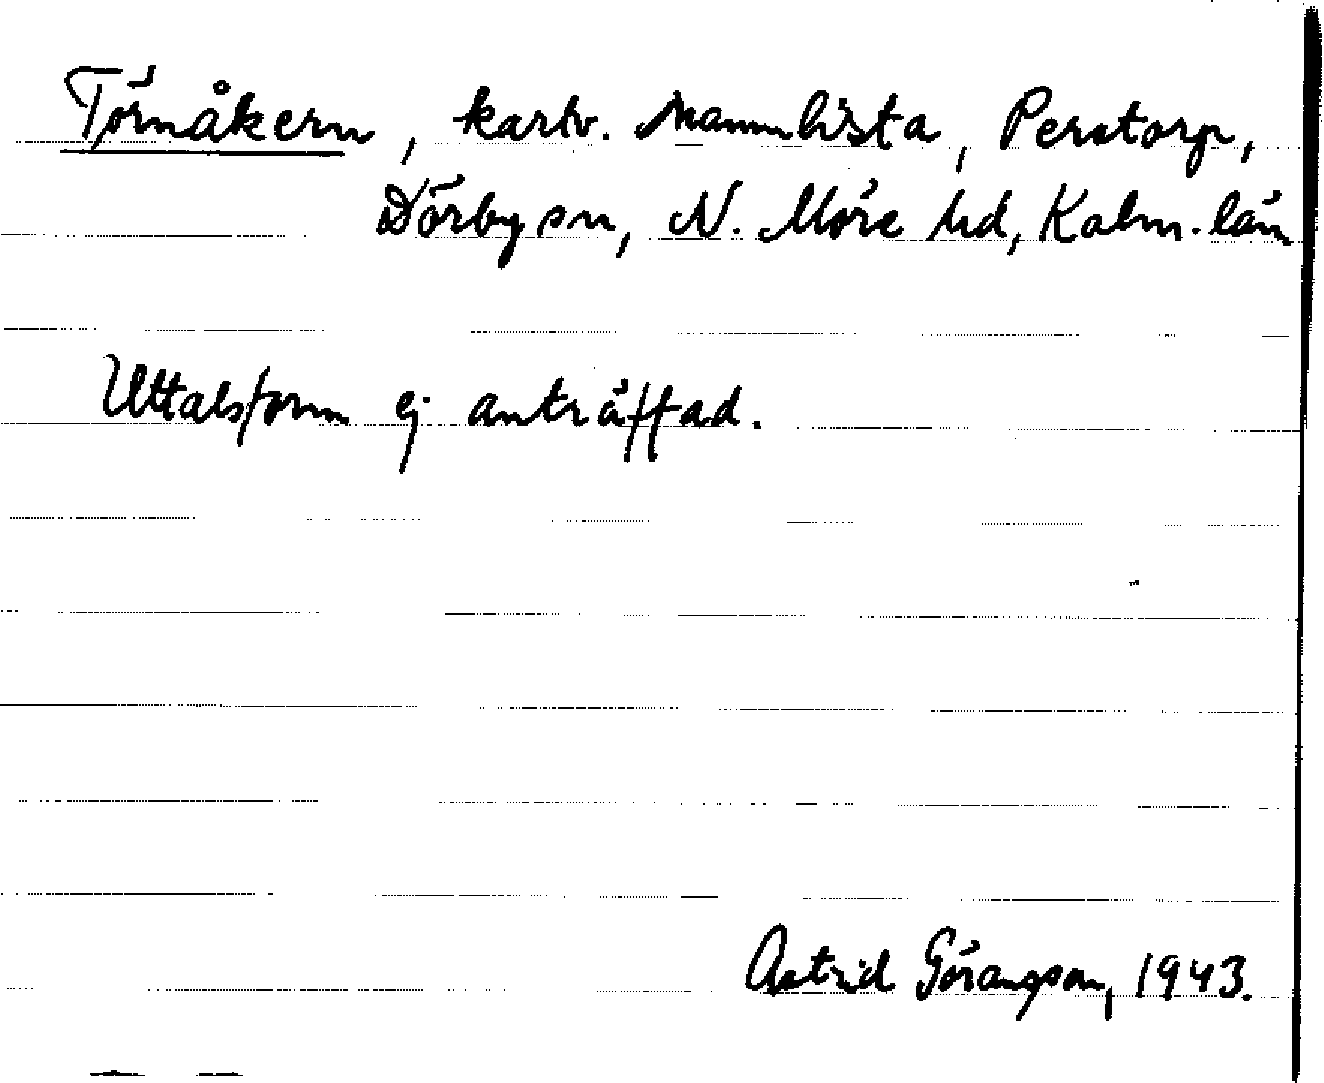 Törnåkern, kartv. Namnlista, Perstorp,
Dörby sn, N. Möre hd, Kalm. län
Uttalsform ej anträffad.
Astrid Göransson, 1943.